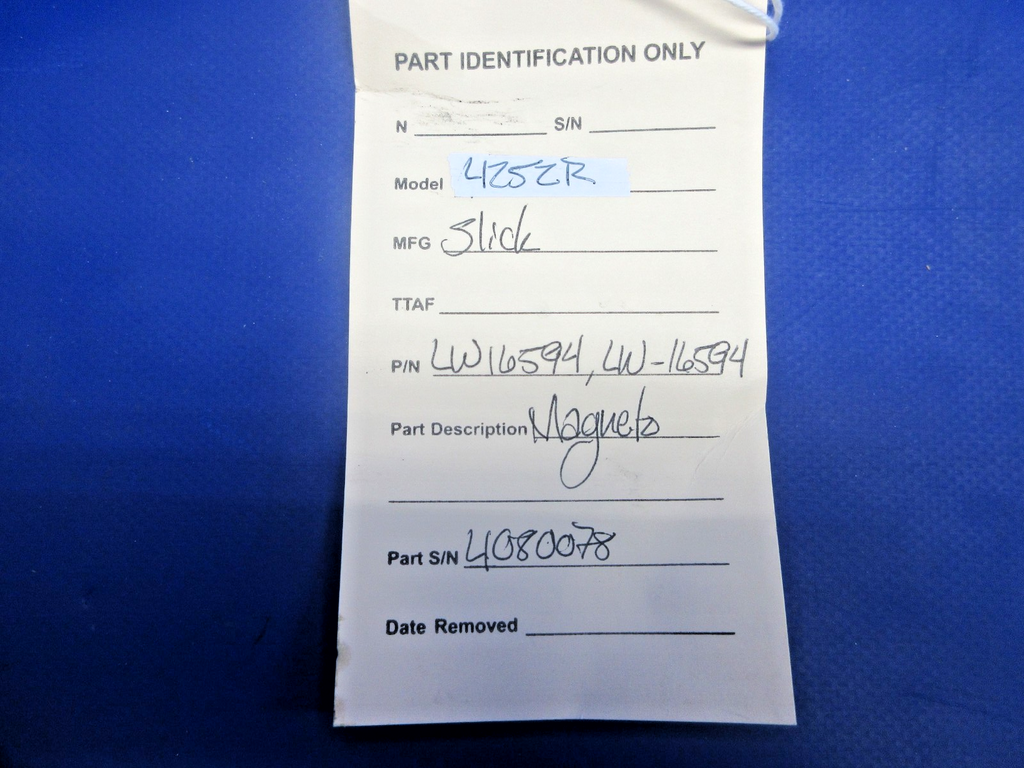 PART IDENTIFICATION ONLY
N S/N
Model 4252R
MFG Slick
TTAF
P/N LW16594, LW-16594
Part Description Magneto
Part S/N 4080078
Date Removed